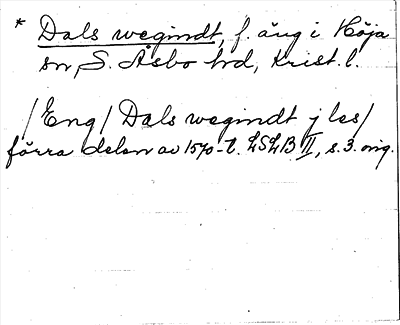 * Dals wegindt, f. äng i Höja
sn, S. Åsbo hd, Krist. l.
/Eng/ Dals wegindt j les/
förra delen av 1570-t. LSLB II, s. 3. orig.